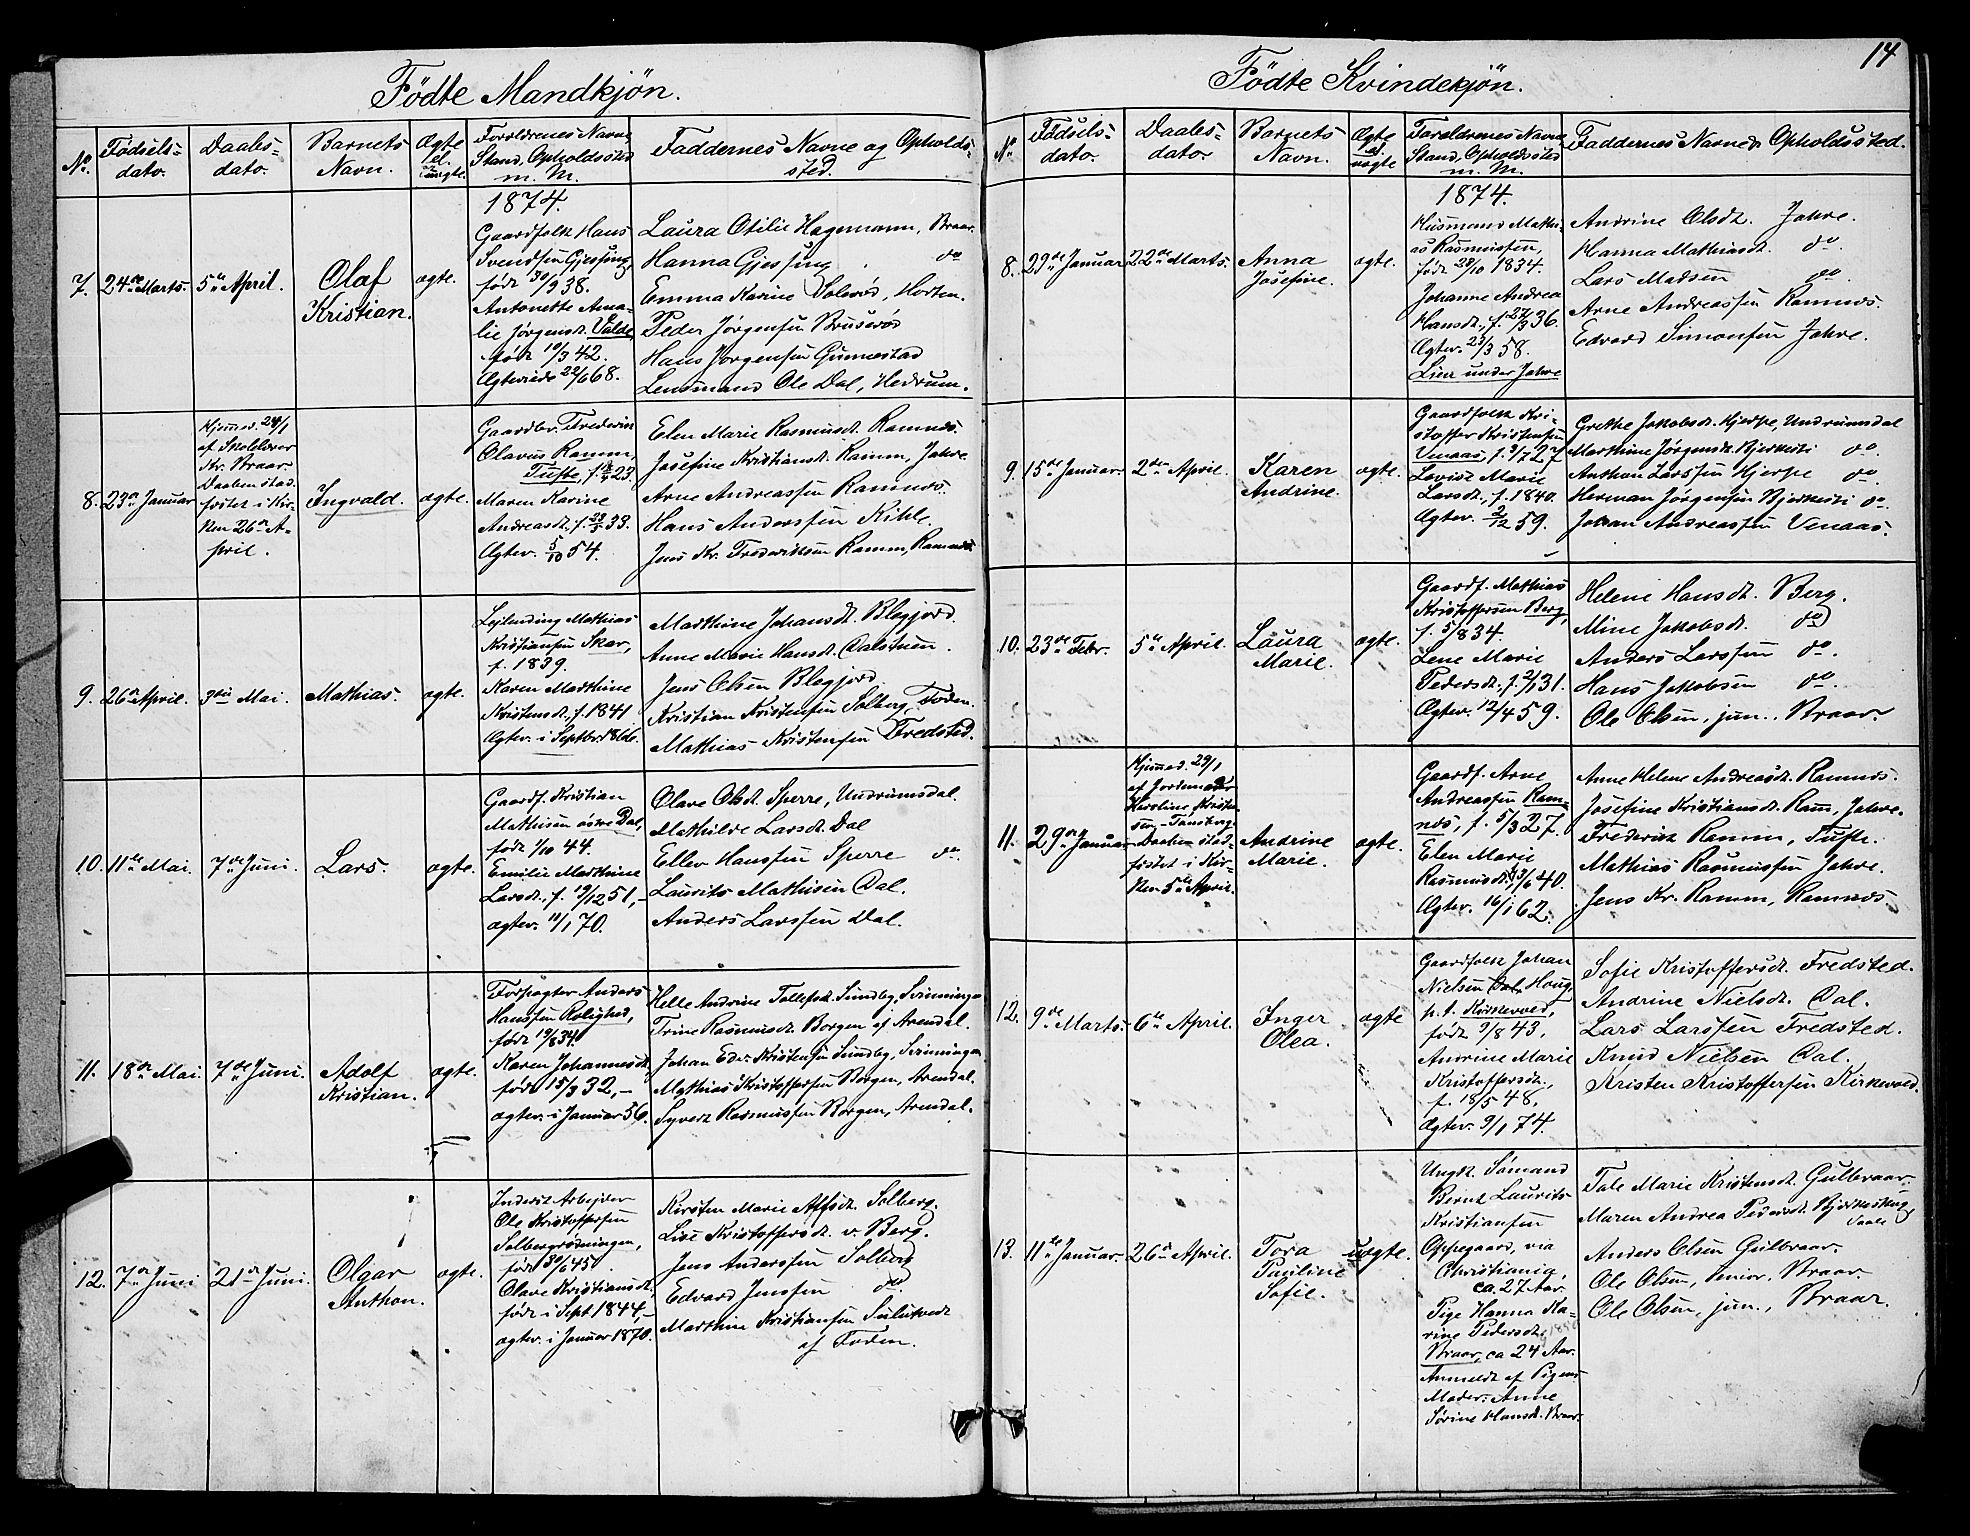 Fødte Mandkjøn.
No.
Fødsels-
dato.
Daabs-
dato.
Barnets
Navn.
Ægte
el.
uægte.
Forældrenes Navne
Stand, Opholdssted
m. M.
Faddernes Navne og Opholds-
sted.
1874.
7.
24de Marts.
5te April.
Olaf
Kristian.
ægte.
Gaardfolk Hans
Svendsen Gjessing
født 30/9 38.
Antonette Ama-
lie Jørgensdt. Valde,
født 10/3 42.
Ægteviede 22/6 68.
Laura Otilie Hagemann, Braar.
Hanna Gjessing do
Emma Karine Solerød, Horten.
Peder Jørgensen Bruserød
Hans Jørgensen Gunnestad
Lensmand Ole Dal, Hedrum.
8.
23de Januar
Hjemmed. 29/1
af Skolelærer
Kr. Braar.
Daaben stad-
fæstet i Kir-
ken 26de A-
pril.
Ingvald.
ægte.
Gaardbr. Frederik
Olavus Ramm,
Tufte, f. 23.
Maren Karine
Andreasdt., f. 33.
Ægtev. 5/10 54.
Elen Marie Rasmusdt. Ramnæs.
Josefine Kristiansdt. Ramm, Jahre
Arne Andreassen Ramnæs.
Hans Anderssen Kihle.
Jens Kr. Frederiksen Ramm, Ramnæs.
9.
26de April.
3die Mai.
Mathias.
ægte.
Lejlending Mathias
Kristiansen Skar,
f. 1839.
Karen Marthine
Kristensdt., f. 1841
Ægtev. i Septbr. 1866.
Marthine Johansdt. Blegjord.
Anne Marie Hansdt. Dalstuen.
Jens Olsen Blegjord.
Kristian Kristensen Solberg, Foden.
Mathias Kristensen Fredsted.
10.
11te Mai.
7de Juni.
Lars.
ægte.
Gaardf. Kristian
Mathisen østre Dal,
født 1/10 44.
Emilie Marthine
Larsdt., f. 19/12 51,
ægtev. 11/1 70.
Olave Olsdt. Sperre, Undrumsdal.
Mathilde Larsdt. Dal
Ellev Hanssen Sperre do.
Laurits Mathisen Dal.
Anders Larssen Dal.
11.
18de Mai.
7de Juni.
Adolf
Kristian.
ægte.
Forpagter Anders
Hanssen Rolighed,
født 19/8 34
Karen Johannesdt.
født 15/3 32,
ægtev. i Januar 56.
Helle Andrine Tollefsdt. Sundby, Svinningen
Trine Rasmusdt. Borgen af Arendal.
Johan Edv. Kristensen Sundby, Svinningen
Mathias Kristoffersen Borgen, Arendal.
Syvert Rasmussen Borgen, Arendal.
12.
7de Juni
21de Juni.
Olgar
Anthon.
ægte.
Inderst Arbejder
Ole Kristoffersen
Solbergrødningen,
født 30/6 45.
Olave Kristiansdt.
født i Sept 1844,
ægtev. i Januar 1870.
Kirsten Marie Alfsdt. Solberg.
Lise Kristoffersdt. v. Berg.
Jens Anderssen Solberg
Edvard Jenssen do.
Marthin Kristiansen
af Foden.
14
Fødte Kvindekjøn.
No.
Fødsels-
dato.
Daabs-
dato
Barnets
Navn.
Ægte
el.
uægte
Forældrenes Navne
Stand, Opholdssted
m. M.
Faddernes Navne og Opholdssted.
1874.
8.
29de Januar
22de Marts.
Anna
Josefine.
ægte.
Husmand Mathi-
as Rasmussen,
født 28/10 1834.
Johanne Andrea
Hansdt., f. 27/3 36.
Ægtev. 23/3 58.
Lien under Jahre
Andrine Olsdt. Jahre.
Hanna Mathiasdt. do.
Lars Madsen do.
Arne Andreassen Ramnæs.
Edvard Simonsen Jahre.
9.
15de Januar.
2den April.
Karen
Andrine.
ægte.
Gaardfolk Kri-
stoffer Kristensen
Venaas, f. 9/7 27
Lovise Marie
Larsdt., f. 1840.
Ægtev. 2/12 59.
Grethe Jakobsdt. Hjerpe, Undrumsdal
Marthine Jørgensdt. Bjerkesti do.
Anthon Larssen Hjerpe do.
Herman Jørgensen Bjerkesti do.
Johan Andreassen Venaas.
10.
23de Febr.
5te April.
Laura
Marie.
ægte.
Gaardf. Mathias
Kristoffersen Berg,
f. 5/8 34.
Lene Marie
Pedersdt., f. 2/1 31.
Ægtev. 12/4 59.
Helene Hansdt. Berg.
Mine Jakobsdt. do
Anders Larssen do.
Hans Jakobsen do.
Ole Olsen, jun., Braar.
11.
29de Januar
Hjemmed. 29/1
af Jordemoder
Karoline Kristen-
sen, Tønsberg.
Daaben stad-
fæstet i Kir-
ken 5te April.
Andrine
Marie.
ægte.
Gaardf. Arne
Andreassen Ram-
næs, f. 5/3 27.
Elen Marie
Rasmusdt. 13/6 40.
Ægtev. 16/1 62.
Anne Helene Andreasdt. Ramnæs.
Josefine Kristiansdt. Ram, Jahre.
Frederik Ramm, Tufte.
Mathias Rasmussen Jahre.
Jens Kr. Ramm, Ramnæs
12.
9de Marts.
6te April.
Inger
Olea.
ægte
Gaardfolk Johan
Nielsen Dal, Houg
p. t. Kirkevold,
født 9/8 43,
Andrine Marie
Kristoffersdt.,
f. 18/5 48,
Ægtev. 9/1 74.
Sofie Kristoffersdt. Fredsted.
Andrine Nielsdt. Dal.
Lars Larssen Fredsted.
Knud Nielsen Dal.
Kristen Kristoffersen Kirkevold.
13.
11te Januar.
26de April.
Tora
Pauline
Sofie.
uægte.
Ungk. Sømand
Bernt Laurits
Kristiansen
Oppegaard, via
Christiania,
ca. 27 Aar.
Pige Hanna Ka-
rine Pedersdt.
Braar, ca 24 Aar.
Anmeldt af Pigens
Moder: Anne
Sørine Hansdt. Braar.
Tale Marie Kristensdt. Gulbraar.
Maren Andrea Pedersdt. Bjerkeskoug,
Vaale
Anders Olsen Gulbraar.
Ole Olsen, Senior, Braar.
Ole Olsen, jun., Braar.